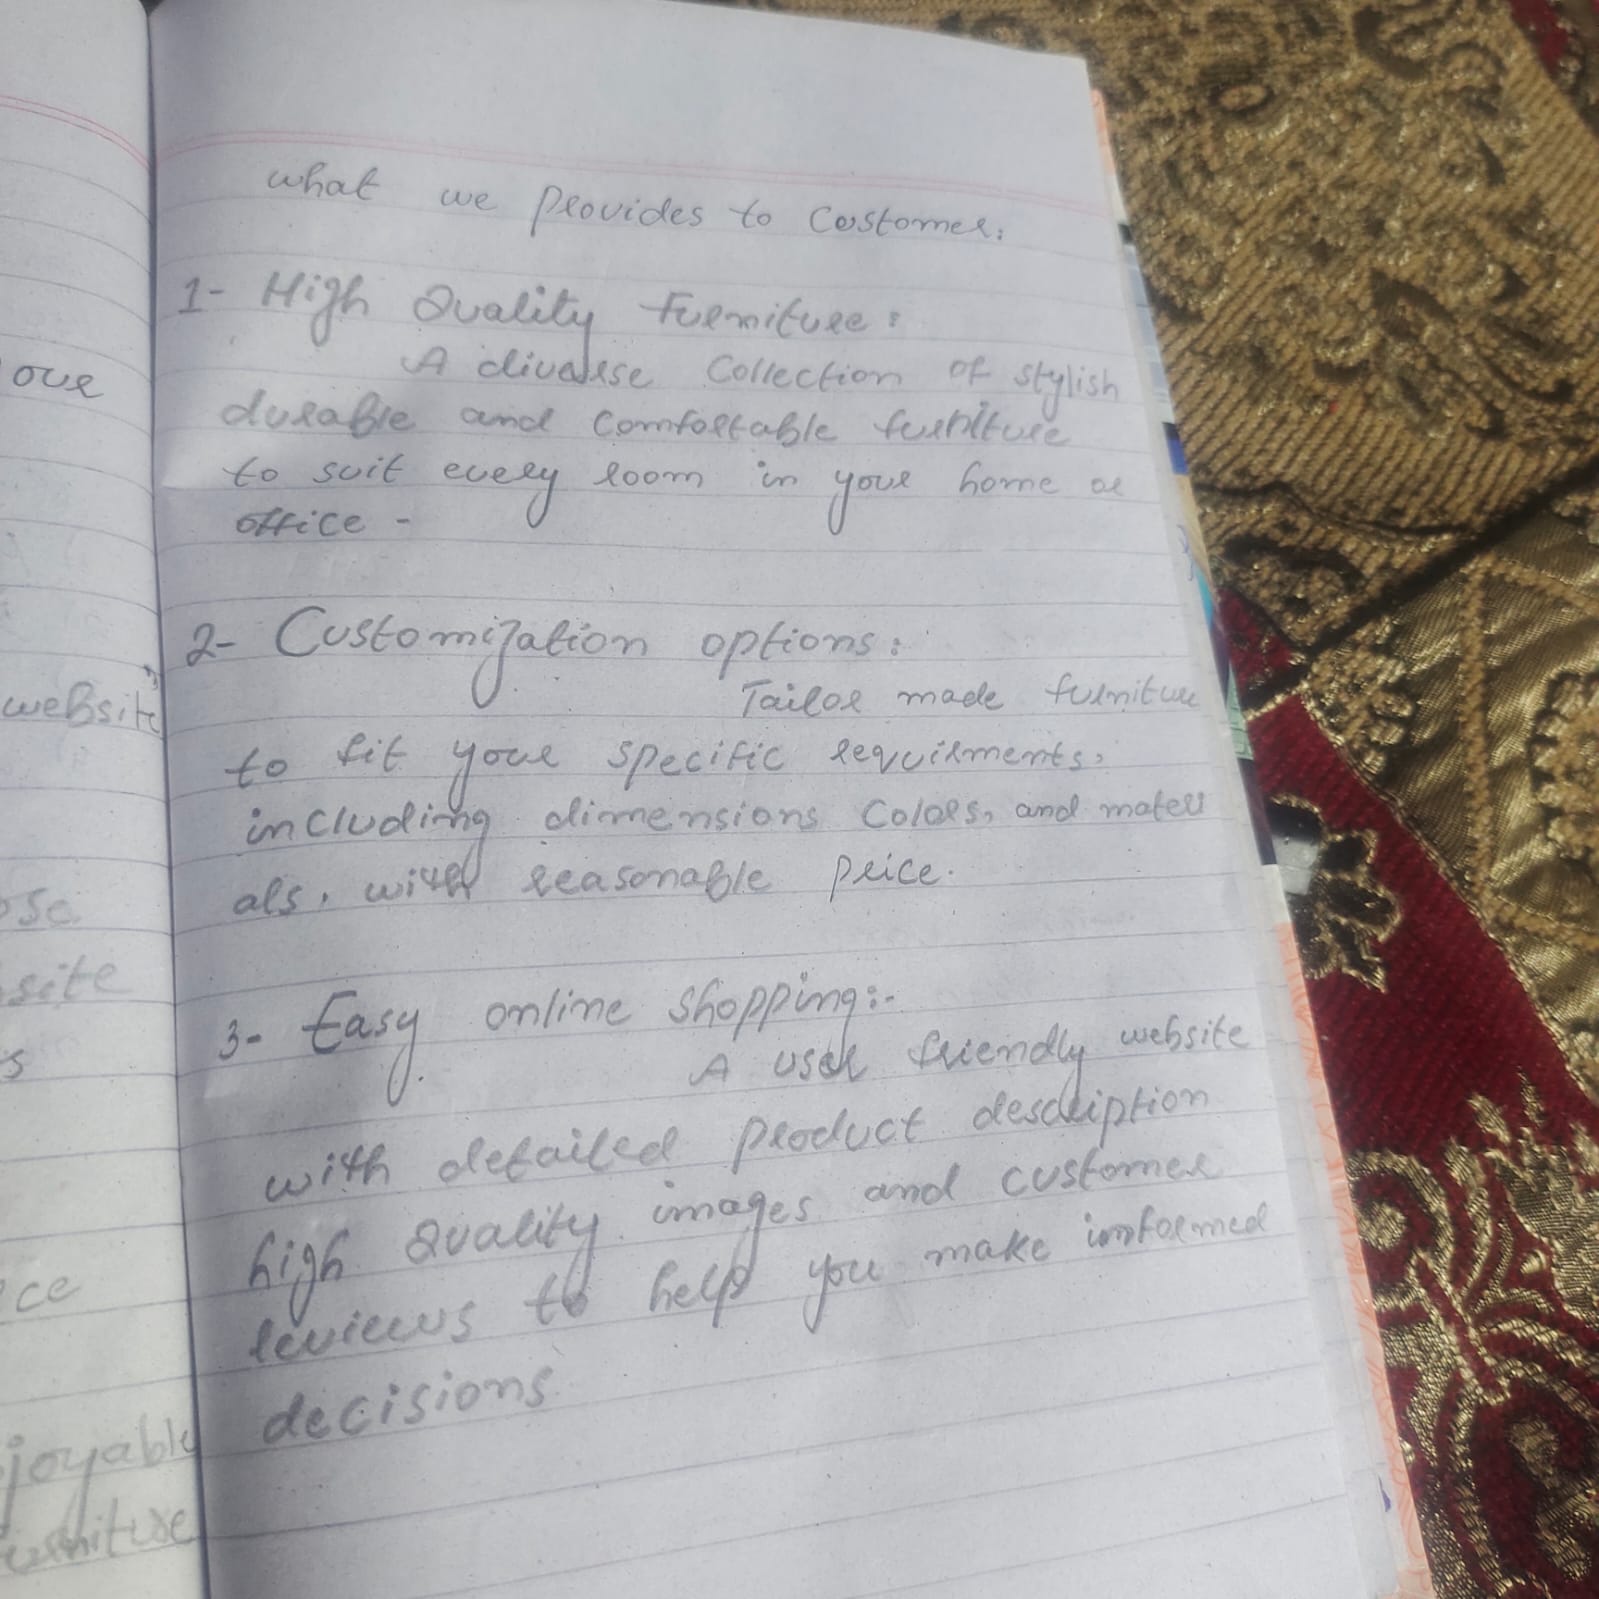 what we provides to Customer:
1- High Quality furniture:
A divaerse Collection of stylish
durable and Comfortable furniture
to suit every room in your home or
office -
2- Customization options:
Tailor made furniture
to fit your specific requirments,
including dimensions Colors, and materi
als, with reasonable price.
3- Easy online shopping:-
A user friendly website
with detailed product description
high quality images and customer
reviews to help you make imformed
decisions
our
website
site
s
ce
joyable
urniture